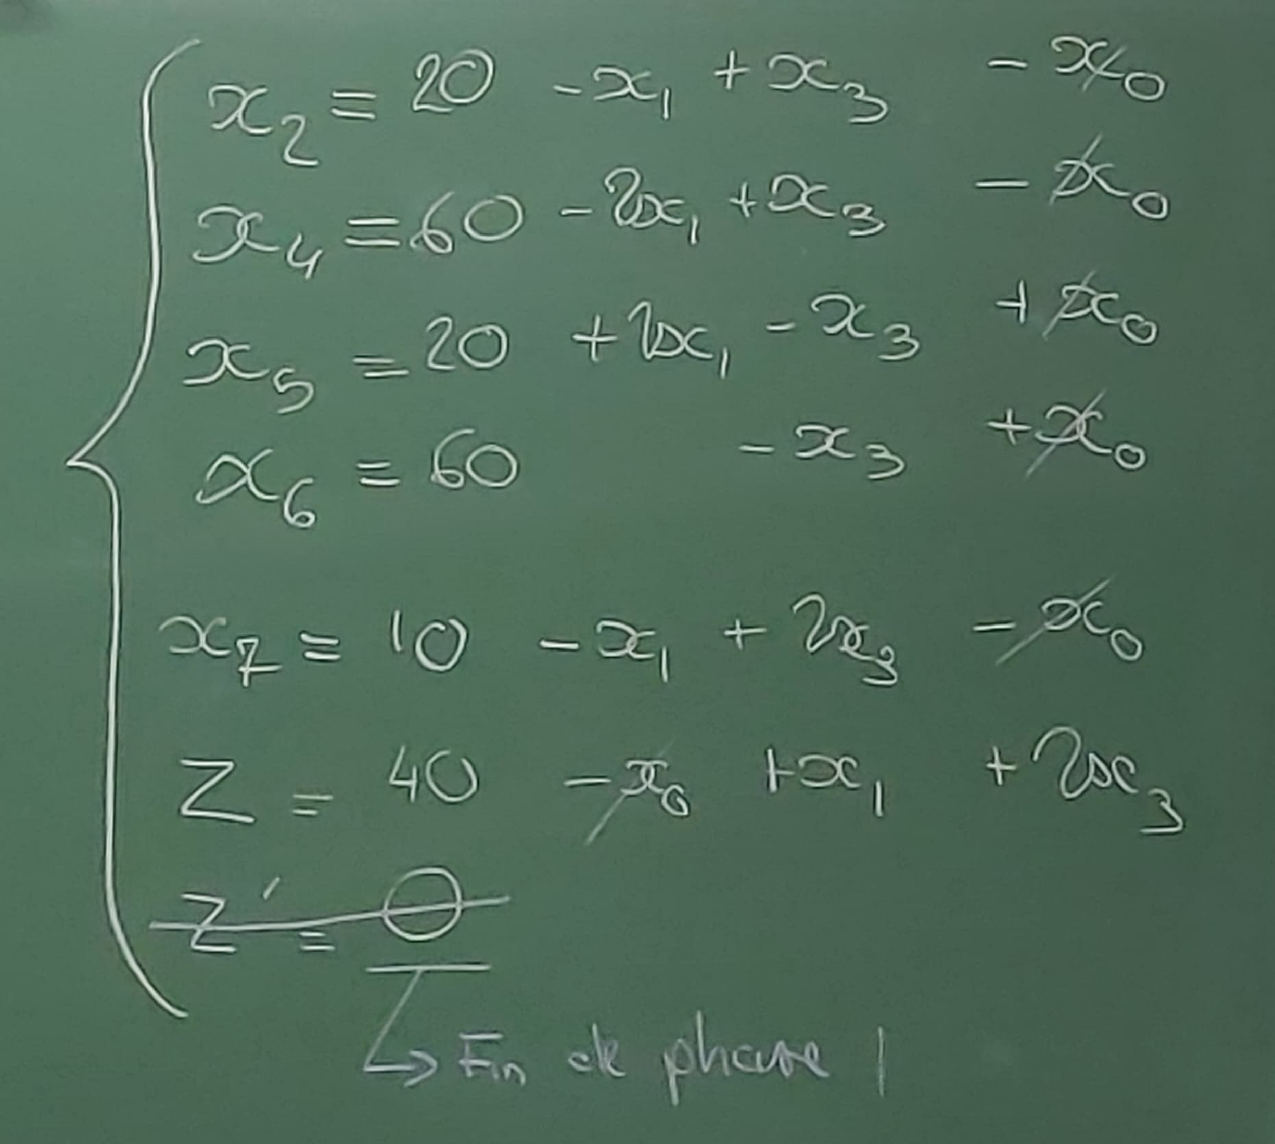 x₂ = 20 - x₁ + x₃ - x₀
x₄ = 60 - 2x₁ + x₃ - x₀
x₅ = 20 + 2x₁ - x₃ + x₀
x₆ = 60 - x₃ + x₀
x₇ = 10 - x₁ + 2x₃ - x₀
Z = 40 - x₀ + x₁ + 2x₃
Z' = 0
↳ Fin de phase 1